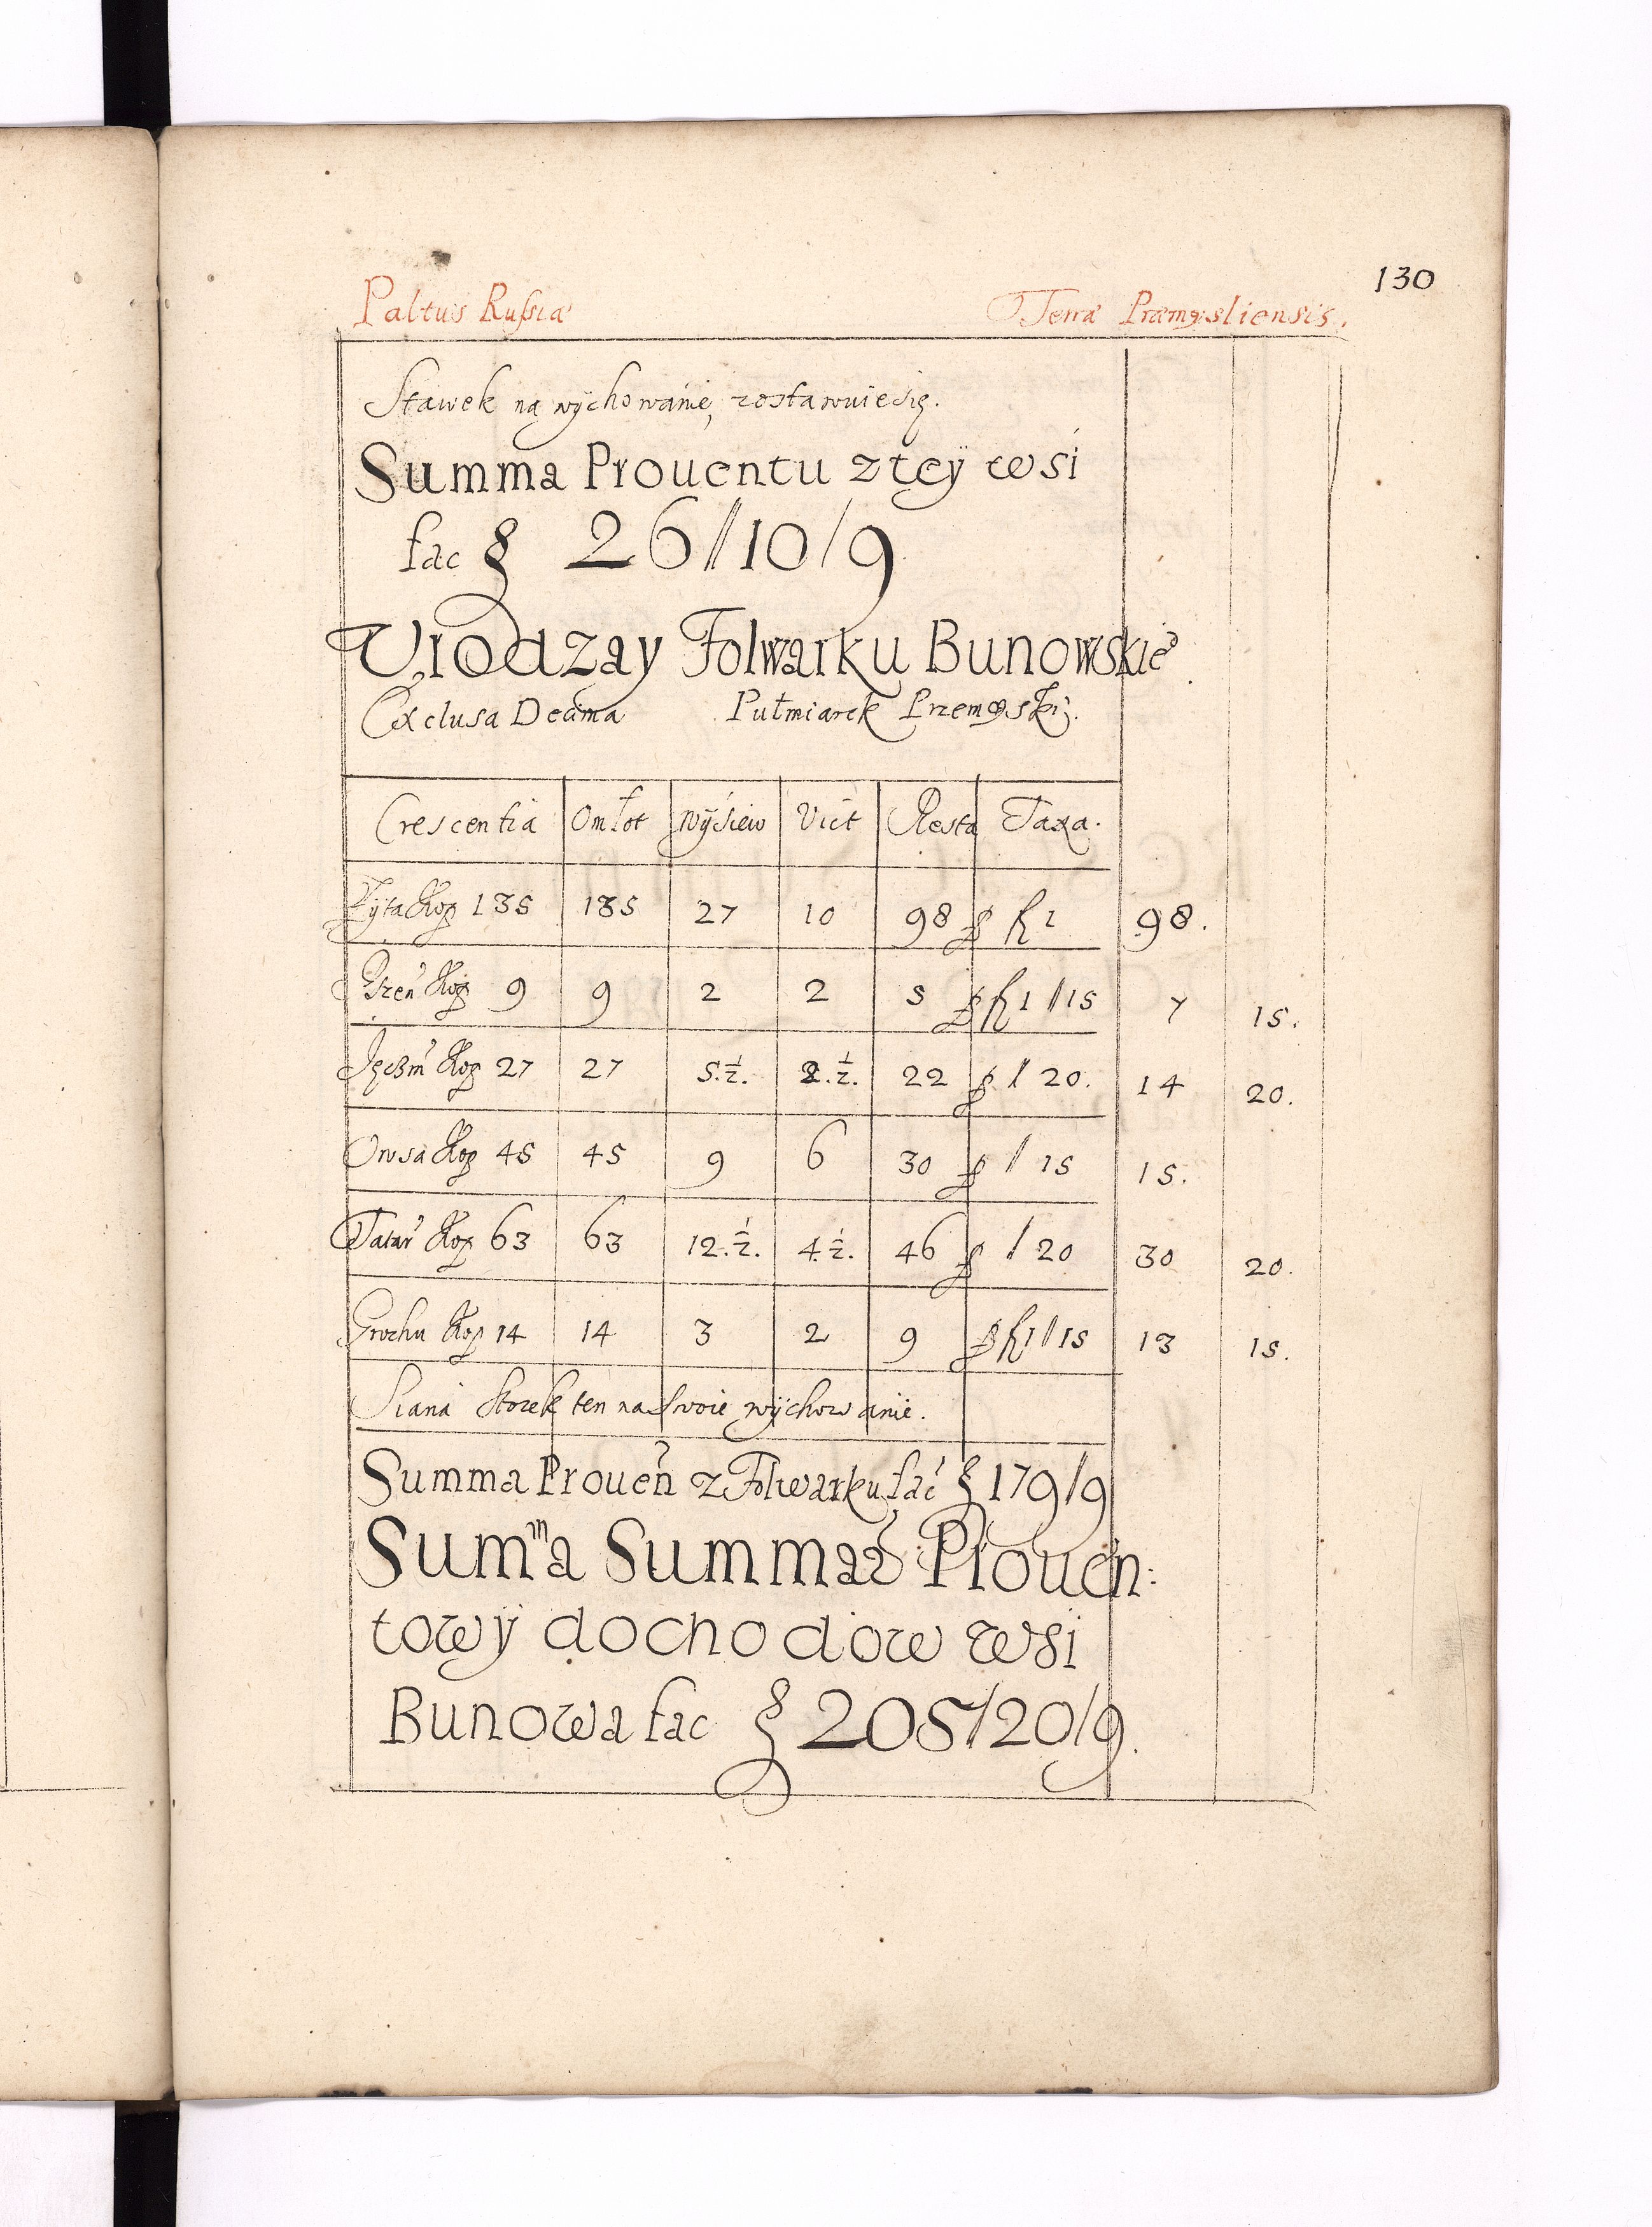 130
Paltus Russiæ Terræ Præmysliensis.
Stawek na wÿchowánié zostawuie się.
Summa Prouentu z teÿ wsi
fac § 26//10/9
Urodzay Folwarku Bunowskie͛
Exclusa Decima Pułmiarek Przemyski.
Crescentia Omłot Wÿsiew Vict Resta Taxa.
Żÿta Kop 135 135 27 10 98 fl 1 98.
Pszeń Kop 9 9 2 2 5 fl 1//15 7 15.
Jęczm Kop 27 27 5.½. 2.½. 22 / 20. 14 20.
Owsa Kop 45 45 9 6 30 / 15 15.
Tatar Kop 63 63 12.½. 4.½. 46 / 20 30 20.
Grochu Kop 14 14 3 2 9 fl 1//15 13 15.
Siana Stożek ten na swoie wÿchowanié.
Summa Proueñ z Folwarku fac § 179/9
Suma Summar Prouen:
towÿ dochodow wsi
Bunowa fac § 205/20/9.